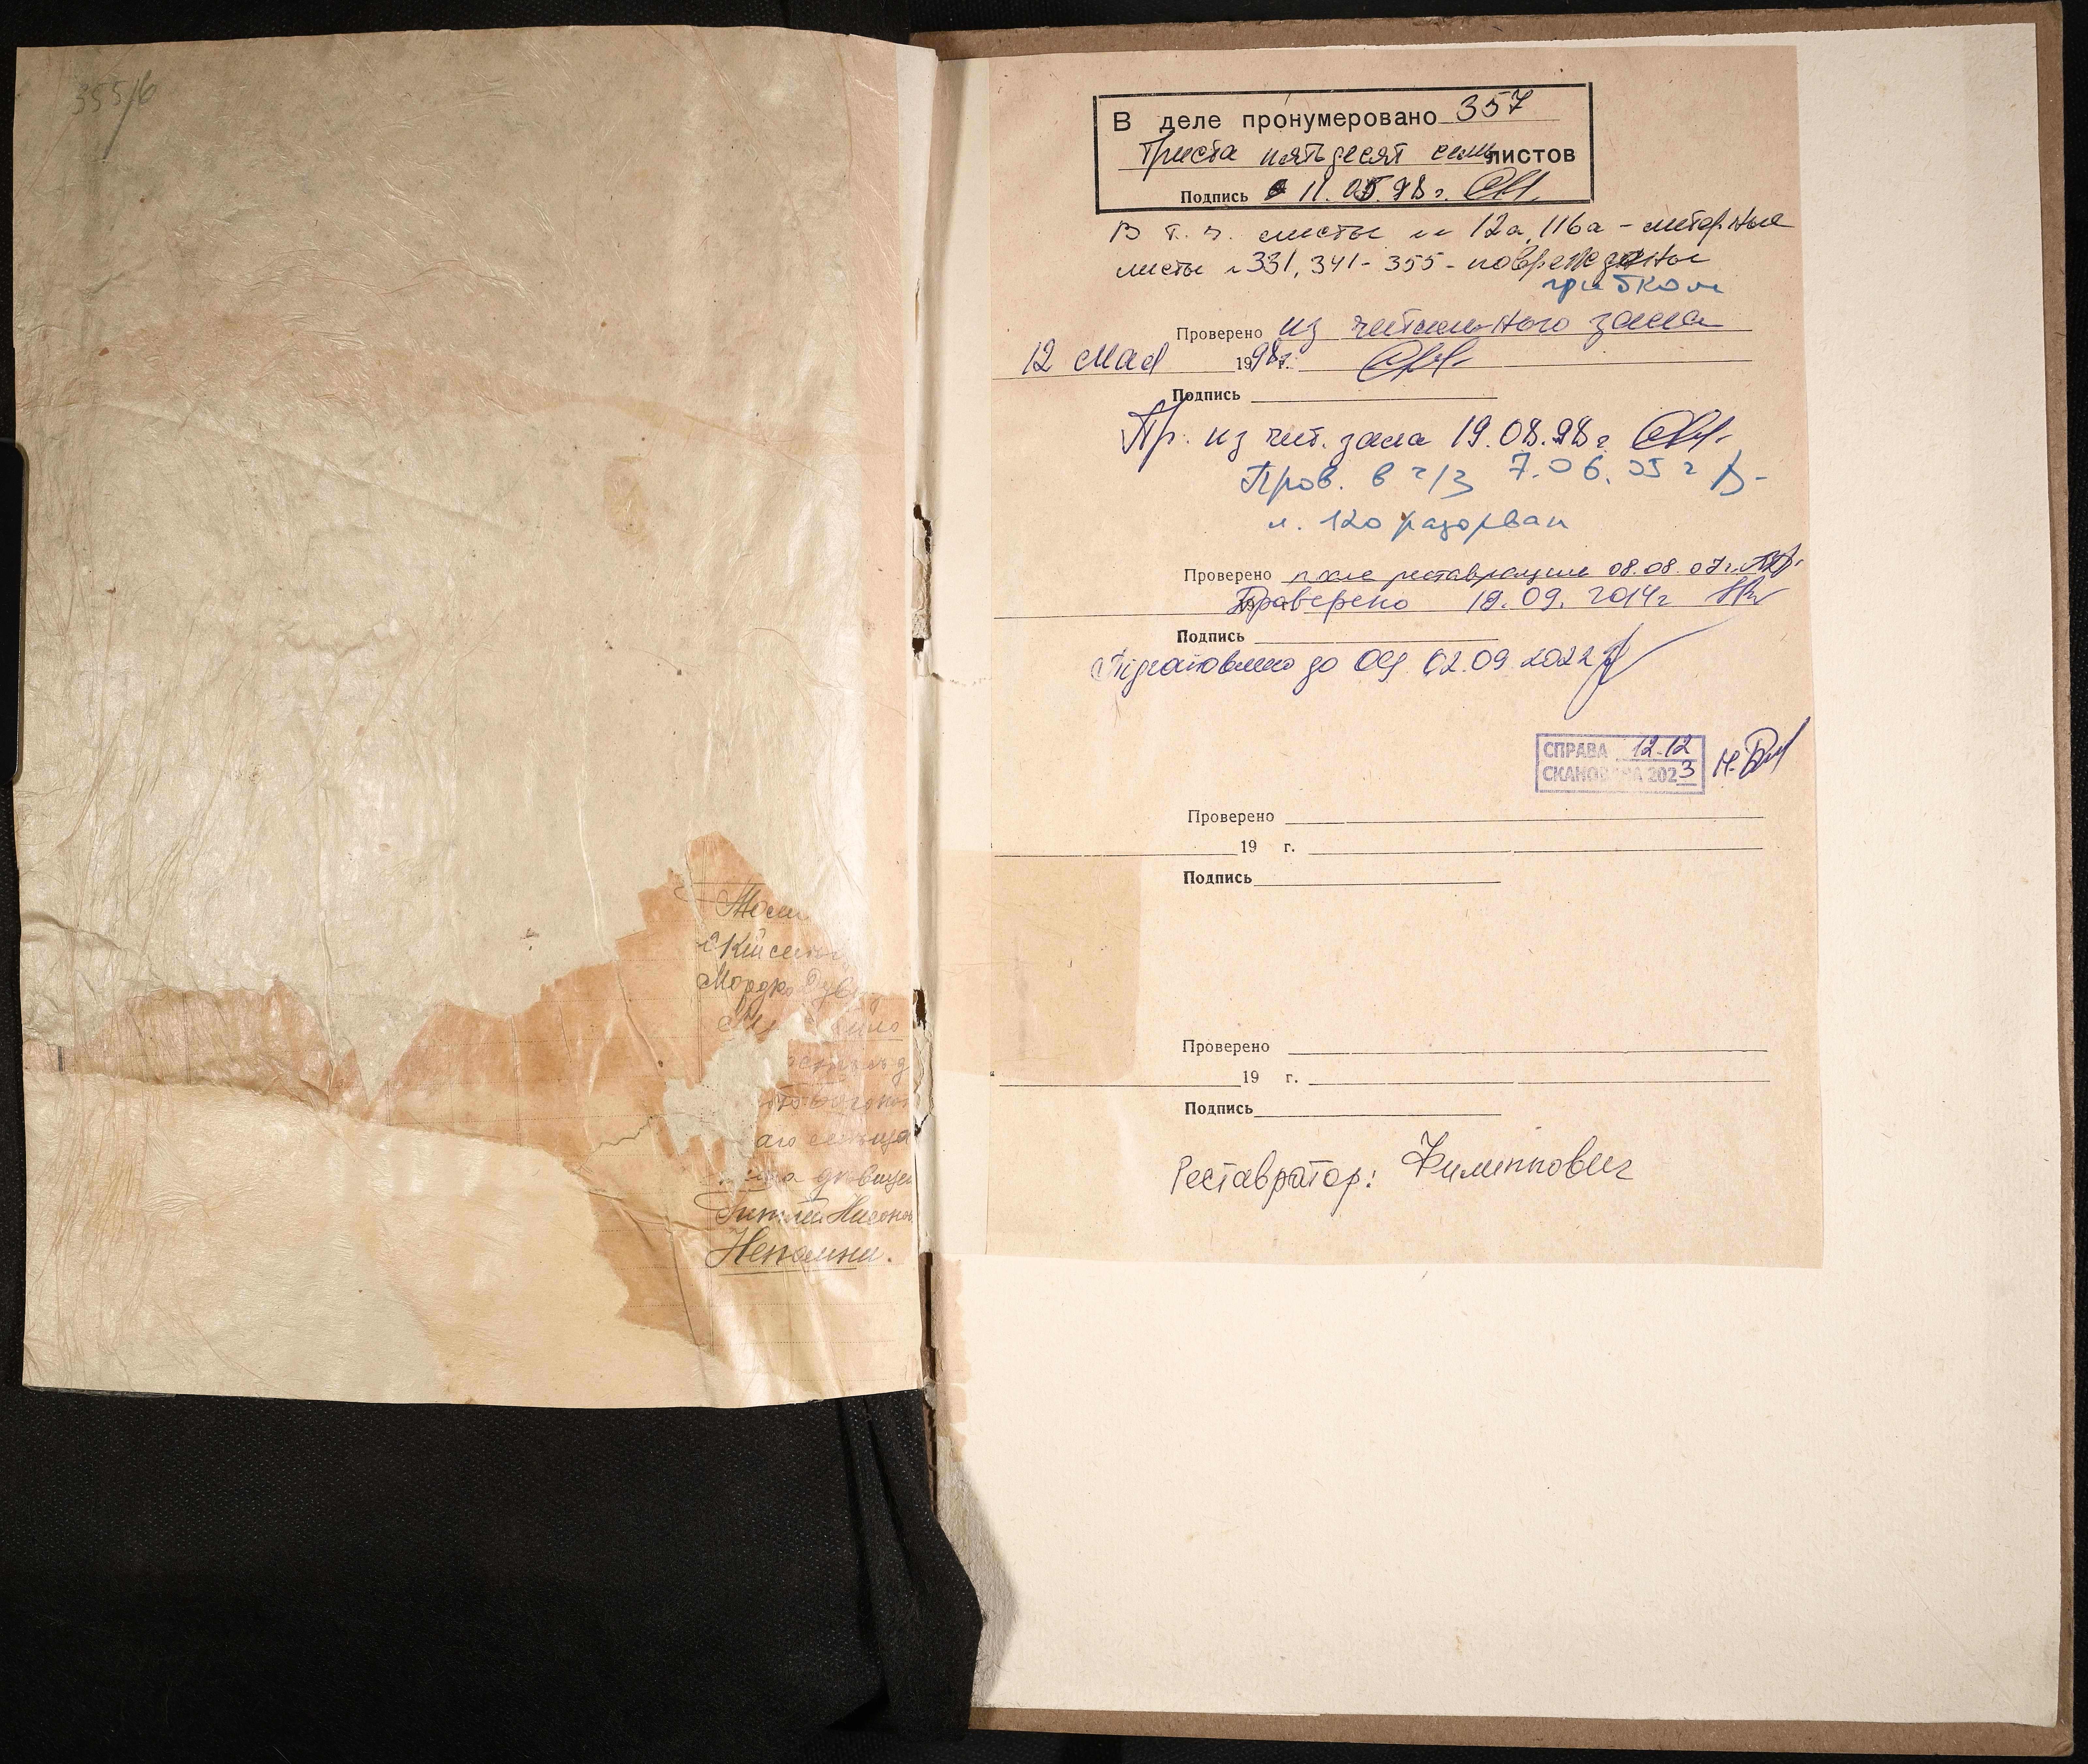 355/б
Мордко
аго
Гитли
Непомни.
В деле пронумеровано 357
Триста пятьдесят семь листов
Подпись 11.05.98 г.
В т. ч. листы 12а, 116а - литерные
листы 331, 341-355 - повреждены
грибком
Проверено из читального зала
12 мая 1998 г.
Подпись
Пр. из чит. зала 19.08.98 г
Пров. в ч/з 7.06.05 г
л. 120 разорван
Проверено после реставрации 08.08.07 г.
Проверено 18.09.2014г
Подпись
Підготовлено до ОЦ 02.09.2022
СПРАВА 12.12
СКАНОВАНА 2023
Проверено
19 г.
Подпись
Проверено
19 г.
Подпись
Реставратор: Филиппович